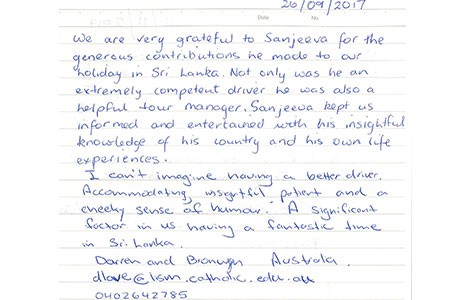 26/09/2017
Date No.
We are very grateful to Sanjeeva for the
generous contributions he made to our
holiday in Sri Lanka. Not only was he an
extremely competent driver he was also a
helpful tour manager. Sanjeeva kept us
informed and entertained with his insightful
knowledge of his country and his own life
experiences.
I can't imagine having a better driver.
Accommodating, insightful, patient and a
cheeky sense of humour. A significant
factor in us having a fantastic time
in Sri Lanka.
Darren and Bronwyn Australia.
dlove@lism.catholic.edu.au
0402642785